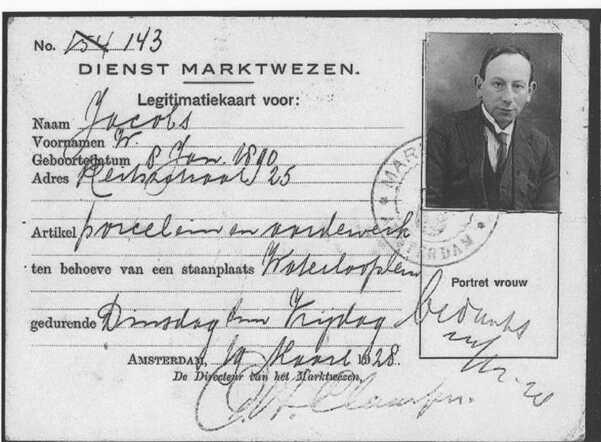 No. 154 143
DIENST MARKTWEZEN.
Legitimatiekaart voor:
Naam Jacobs
Voornamen W.
Geboortedatum 8 Jan. 1890
Adres 25
Artikel porcelein en aardewerk
ten behoeve van een staanplaats Waterlooplein
gedurende Dinsdag t/m Vrijdag
AMSTERDAM, 19 Maart 1928.
De Directeur van het Marktwezen,
MAR
AMSTERDAM
Portret vrouw